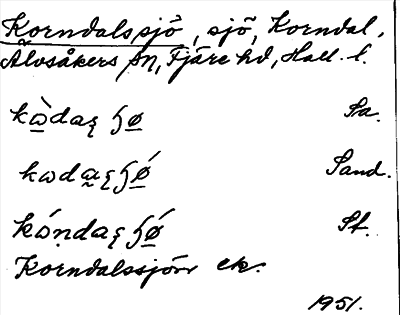 Korndalssjö, sjö, Korndal,
Älvsåkers sn, Fjäre hd, Hall. l.
kὼdaꞩ ɧø Sa.
kωdaꞩɧǿ Sand.
kṓṇdaꞩɧǿ St.
Korndalssjön ek.
1951.